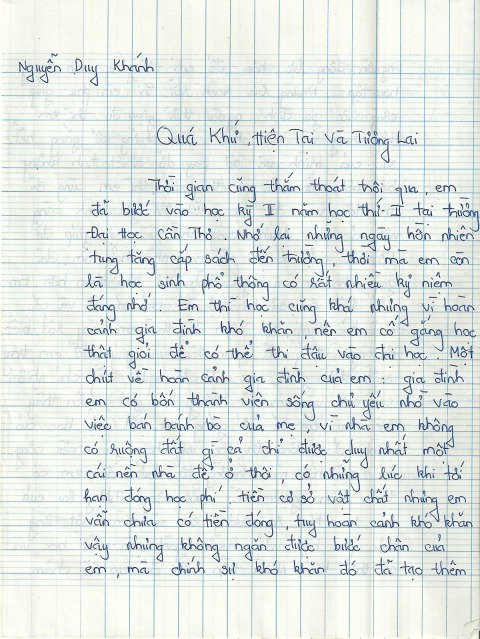 Nguyễn Duy Khánh
Quá Khứ, Hiện Tại Và Tương Lai
Thời gian cũng thấm thoát trôi qua, em
đã bước vào học kỳ II năm học thứ II tại trường
Đại Học Cần Thơ. Nhớ lại những ngày hồn nhiên
tung tăng cấp sách đến trường, thời mà em còn
là học sinh phổ thông có rất nhiều kỷ niệm
đáng nhớ. Em thì học cũng khá nhưng vì hoàn
cảnh gia đình khó khăn, nên em cố gắng học
thật giỏi để có thể thi đậu vào đại học. Một
chút về hoàn cảnh gia đình của em: gia đình
em có bốn thành viên sống chủ yếu nhờ vào
việc bán bánh bò của mẹ, vì nhà em không
có ruộng đất gì cả chỉ được duy nhất một
cái nền nhà để ở thôi, có những lúc khi tới
hạn đóng học phí, tiền cơ sở vật chất nhưng em
vẫn chưa có tiền đóng, tuy hoàn cảnh khó khăn
vậy nhưng không ngăn được bước chân của
em, mà chính sự khó khăn đó đã tạo thêm